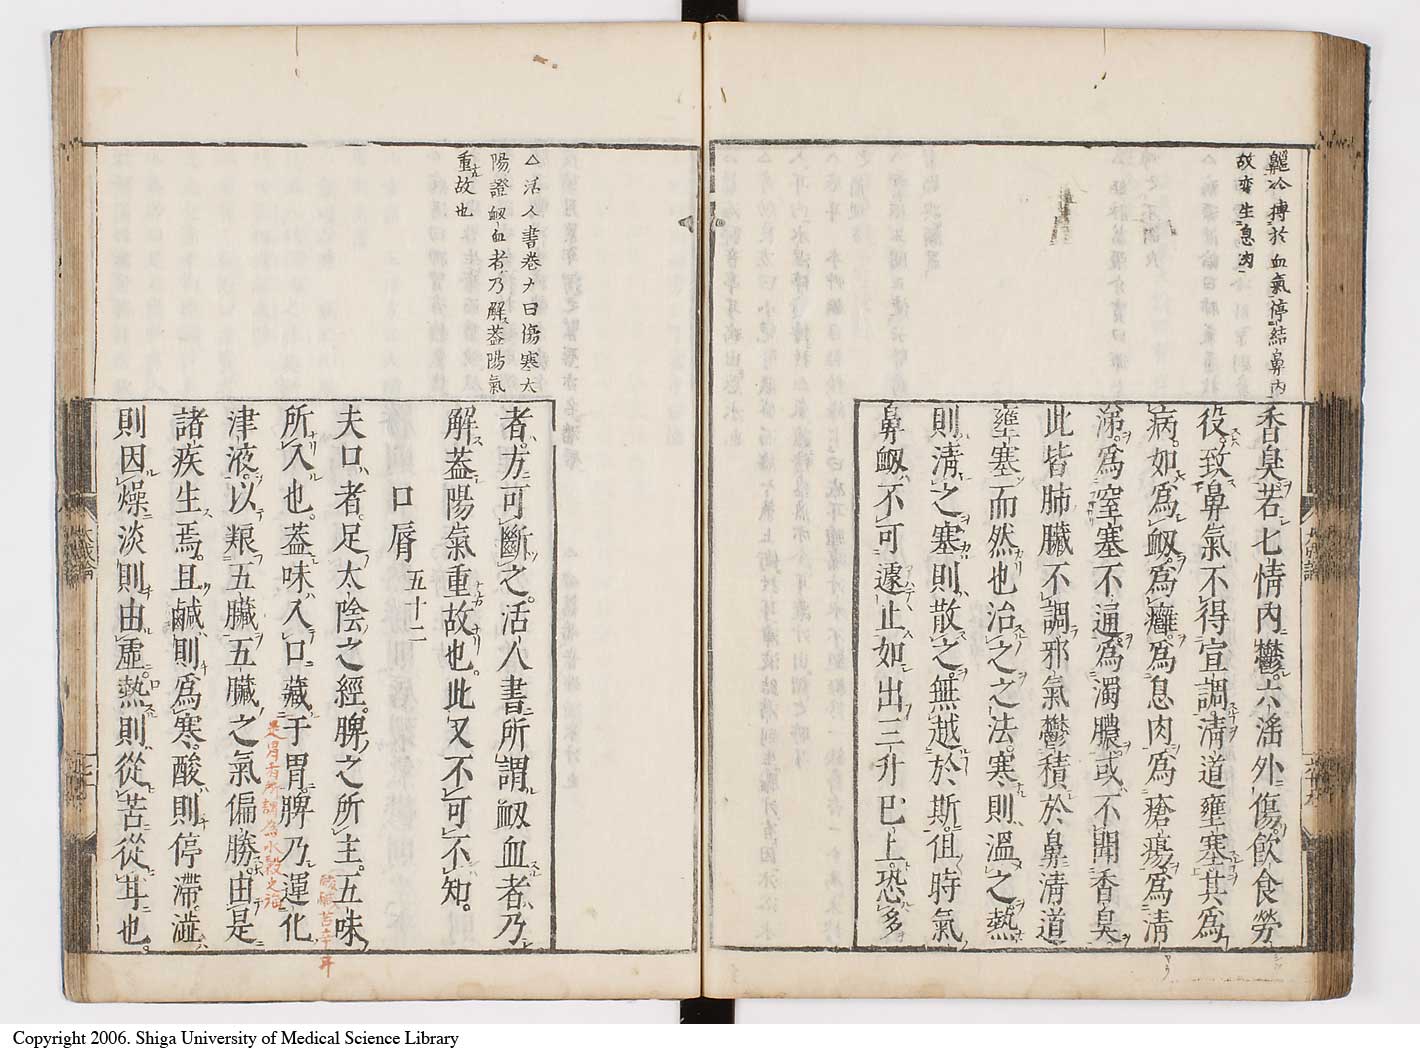 齆冷搏於血氣停結鼻内
故変生息肉
香臭若七情内鬱六淫外傷飲食勞
役致鼻氣不得宣調清道壅塞其為
病如為衂為癰為息肉為瘡瘍為清
涕為窒塞不通為濁膿或不聞香臭
此皆肺臟不調邪氣鬱積於鼻清道
壅塞而然也治之之法寒則溫之熱
則清之塞則散之無越於斯徂時氣
鼻衂不可遽止如出三升巳上恐多
△活人書巻九曰傷寒太
陽證衂血者乃解葢陽氣
重故也
者方可斷之活人書所謂衂血者乃
解葢陽氣重故也此又不可不知
口脣 五十二
夫口者足太陰之經脾之所主五味
酸鹹苦辛耳
所入也葢味入口藏于胃脾乃運化
是胃者所謂為水穀之海
津液以粮五臟五臟之氣偏勝由是
諸疾生焉且鹹則為寒酸則停滯澁
則因燥淡則由虛熱則從苦從耳也
Copyright 2006. Shiga University of Medical Science Library